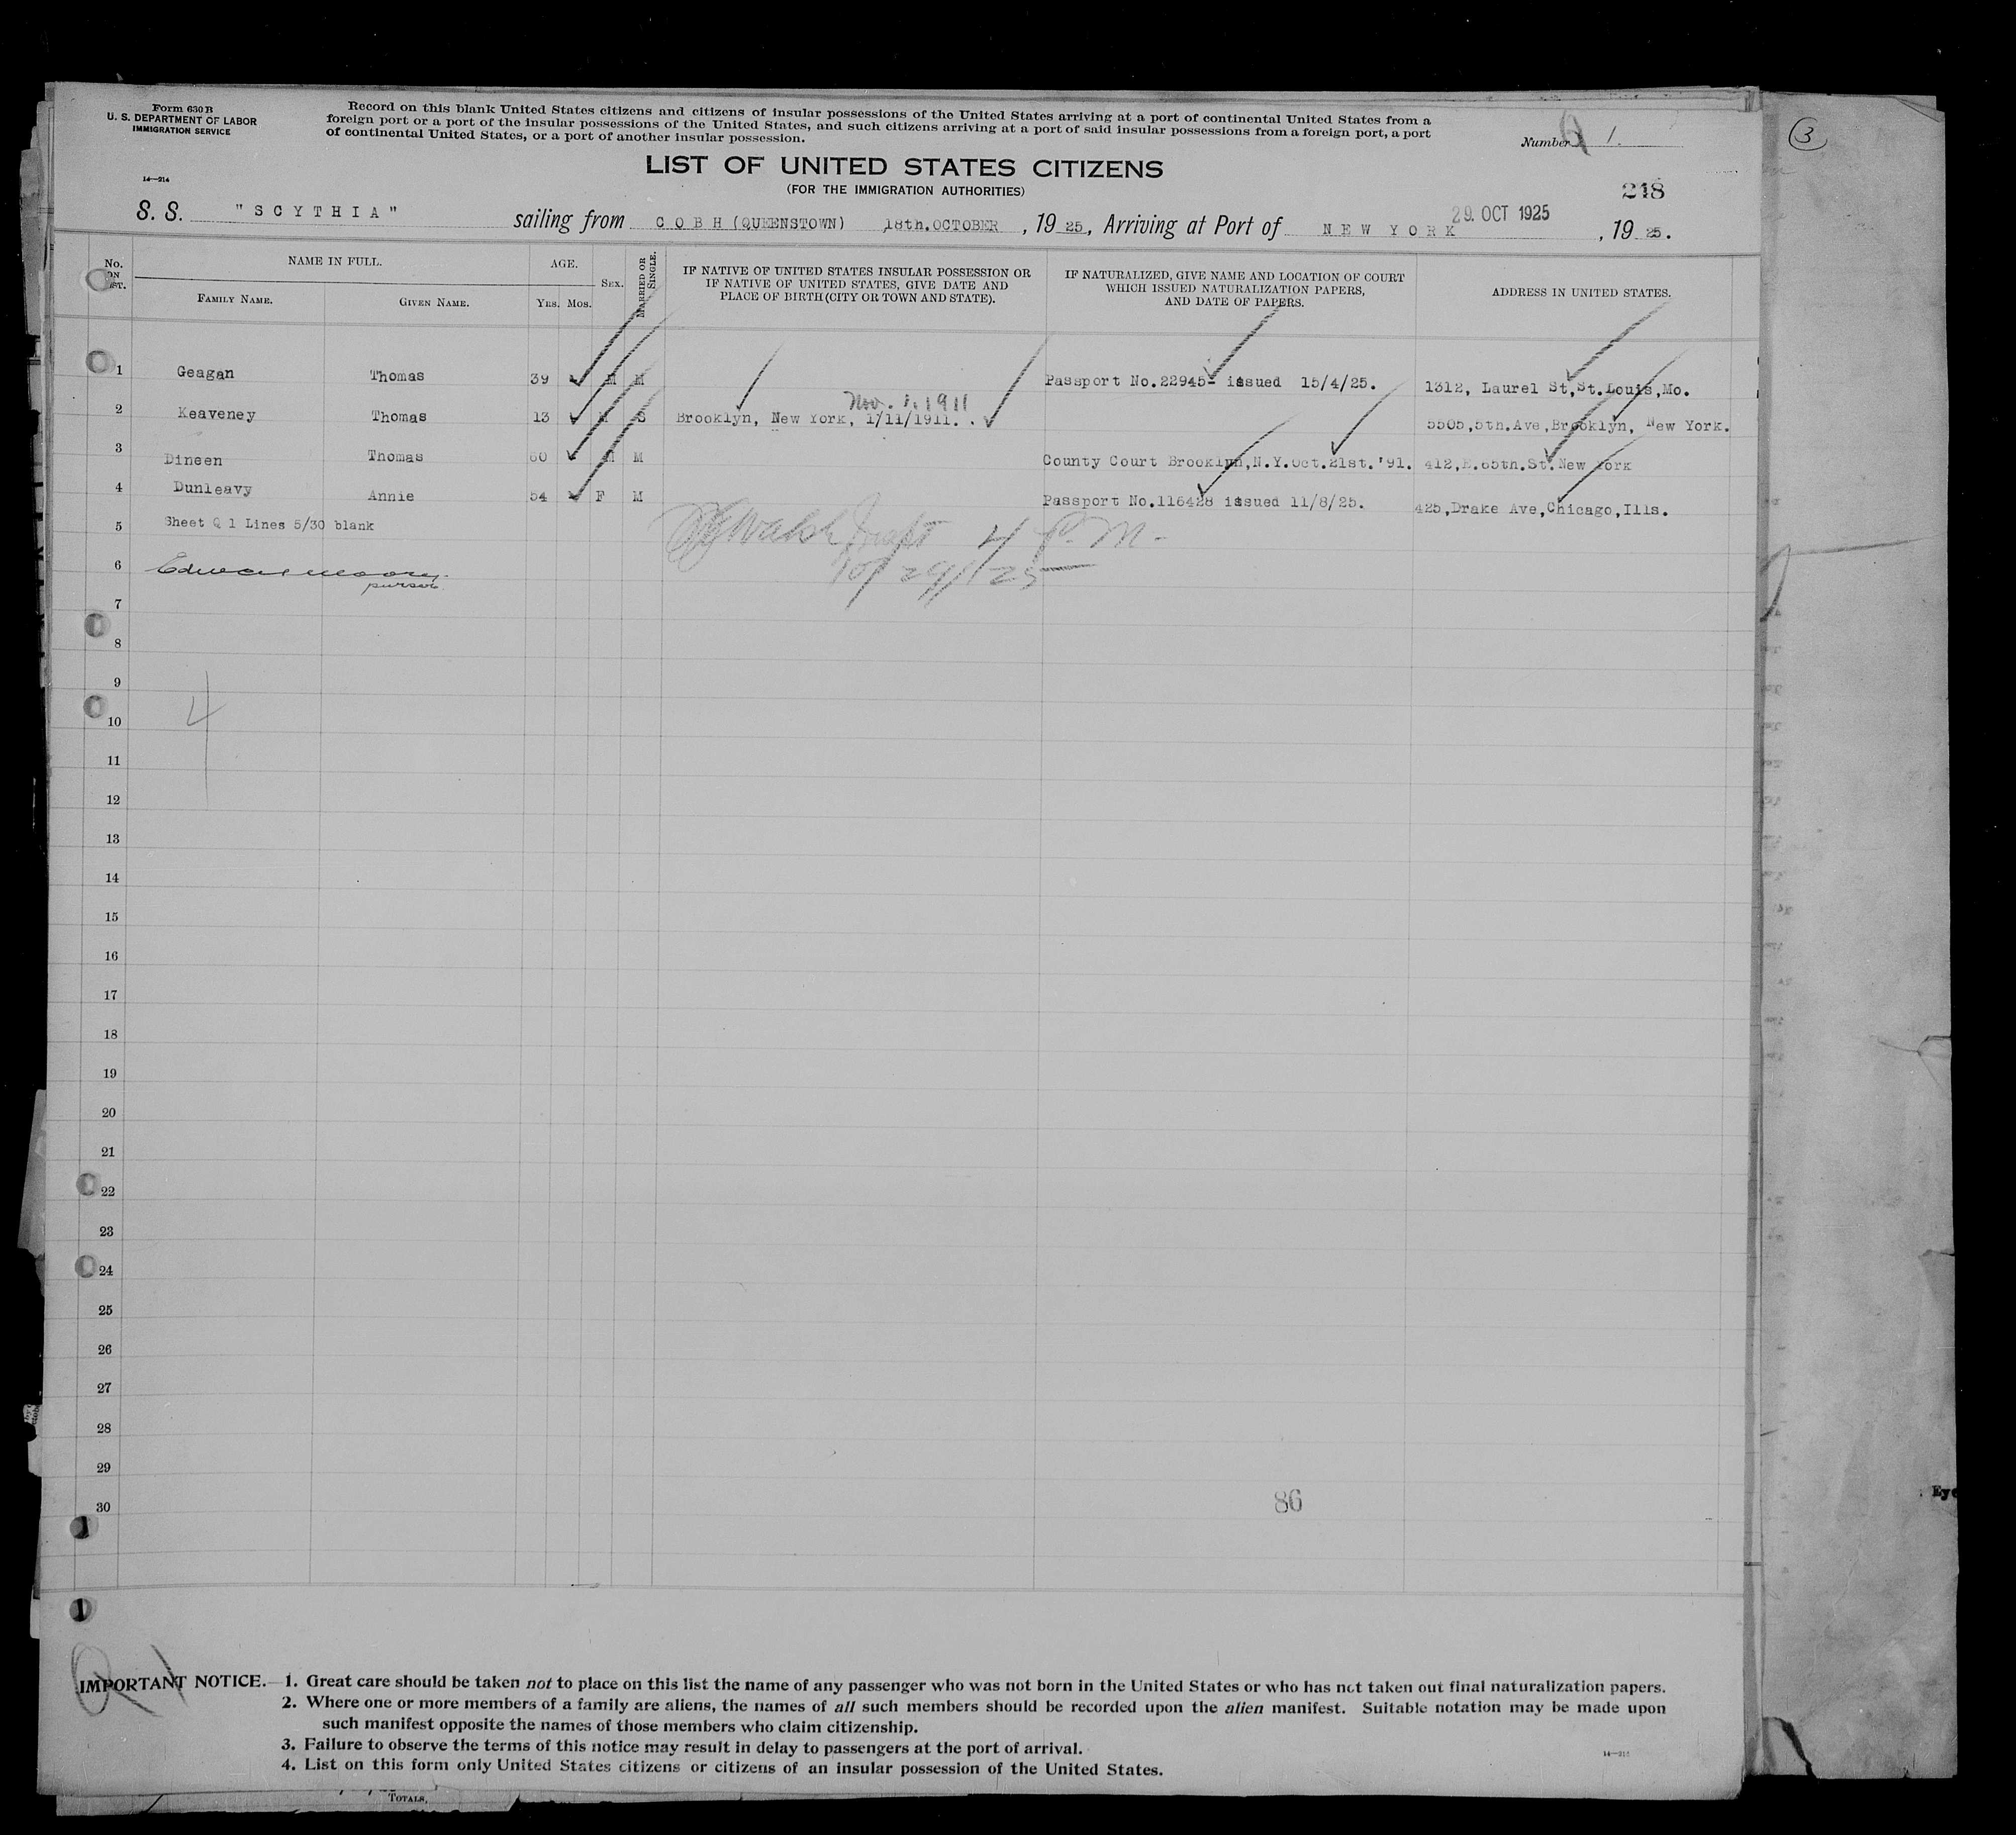 Form 630 B
U. S. DEPARTMENT OF LABOR
IMMIGRATION SERVICE
14—214
Record on this blank United States citizens and citizens of insular possessions of the United States arriving at a port of continental United States from a
foreign port or a port of the insular possessions of the United States, and such citizens arriving at a port of said insular possessions from a foreign port, a port
of continental United States, or a port of another insular possession.
Number Q 1.
3
LIST OF UNITED STATES CITIZENS
(FOR THE IMMIGRATION AUTHORITIES)
218
29. OCT 1925
S. S. "SCYTHIA" sailing from COBH (QUEENSTOWN) 18th.OCTOBER, 1925, Arriving at Port of NEW YORK, 1925.
No. ON LIST. NAME IN FULL. AGE. SEX. MARRIED OR SINGLE. IF NATIVE OF UNITED STATES INSULAR POSSESSION OR IF NATIVE OF UNITED STATES, GIVE DATE AND PLACE OF BIRTH (CITY OR TOWN AND STATE). IF NATURALIZED, GIVE NAME AND LOCATION OF COURT WHICH ISSUED NATURALIZATION PAPERS, AND DATE OF PAPERS. ADDRESS IN UNITED STATES.
FAMILY NAME. GIVEN NAME. YRS. MOS.
1 Geagan Thomas 39 M M Passport No.22945- issued 15/4/25. 1312, Laurel St,St.Louis,Mo.
Nov. 1. 1911
2 Keaveney Thomas 13 M S Brooklyn, New York, 1/11/1911. . 5505,5th.Ave,Brooklyn, New York.
3 Dineen Thomas 60 M M County Court Brooklyn,N.Y.Oct.21st.'91. 412,E.65th.St.New York
4 Dunleavy Annie 54 F M Passport No.116428 issued 11/8/25. 425,Drake Ave,Chicago,Ills.
5 Sheet Q 1 Lines 5/30 blank
Walsh Inspt 4 P.M.
10/29/25
6 Edward Moore
purser
7
8
9
4
10
11
12
13
14
15
16
17
18
19
20
21
22
23
24
25
26
27
28
29
30
86
Eye
Q 1
IMPORTANT NOTICE.—1. Great care should be taken not to place on this list the name of any passenger who was not born in the United States or who has not taken out final naturalization papers.
2. Where one or more members of a family are aliens, the names of all such members should be recorded upon the alien manifest. Suitable notation may be made upon
such manifest opposite the names of those members who claim citizenship.
3. Failure to observe the terms of this notice may result in delay to passengers at the port of arrival.
4. List on this form only United States citizens or citizens of an insular possession of the United States.
TOTALS,